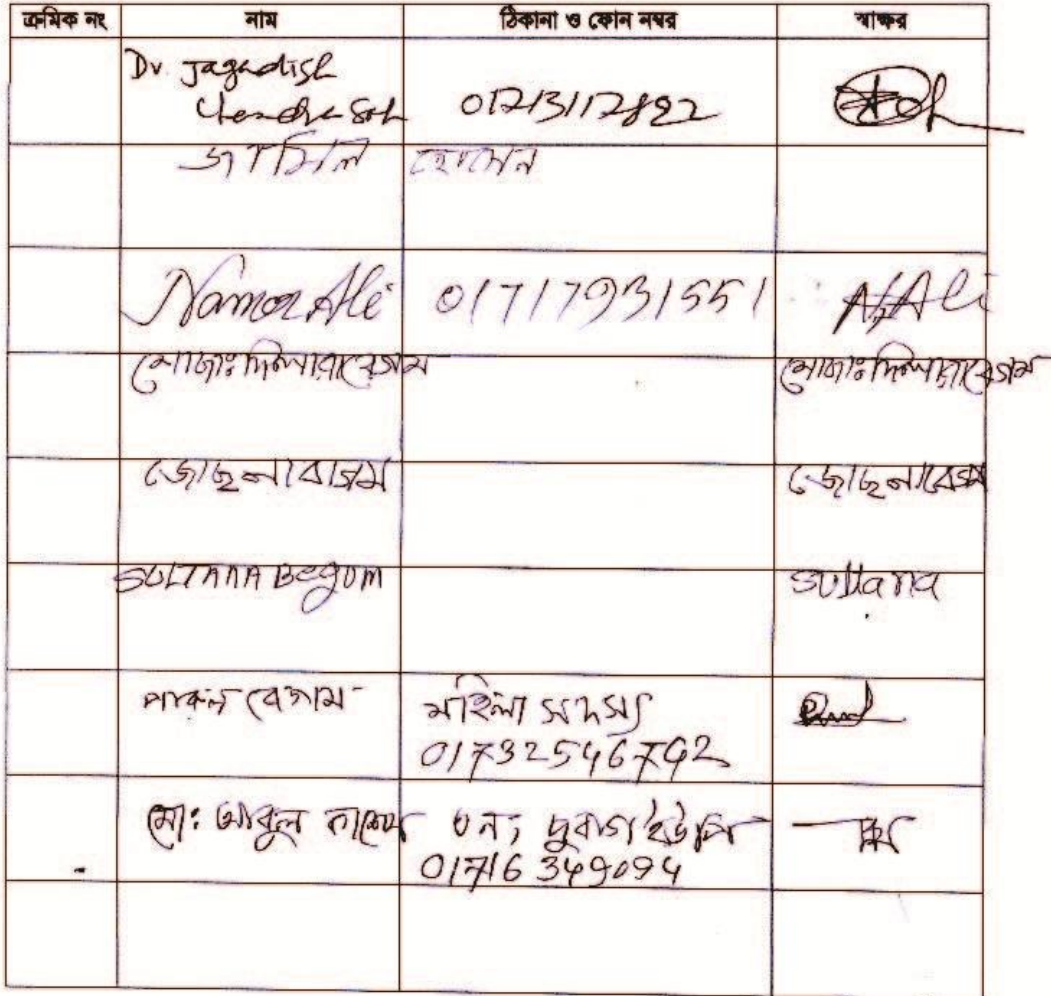 ক্রমিক নং নাম ঠিকানা ও ফোন নম্বর স্বাক্ষর
Dr. Jagadish
Chandra Sah 01713112892
জামিল হোসেন
Namor Ali 01717931551 A/Ali
মোছাঃ দিলারা বেগম মোছাঃ দিলারা বেগম
জোছনা বেগম জোছনা বেগম
SULTANA Begum Sultana
পারুল বেগম মহিলা সদস্য
01732546792
মোঃ আবুল কালাম ৩নং দুবাগ ইউপি
01716349094